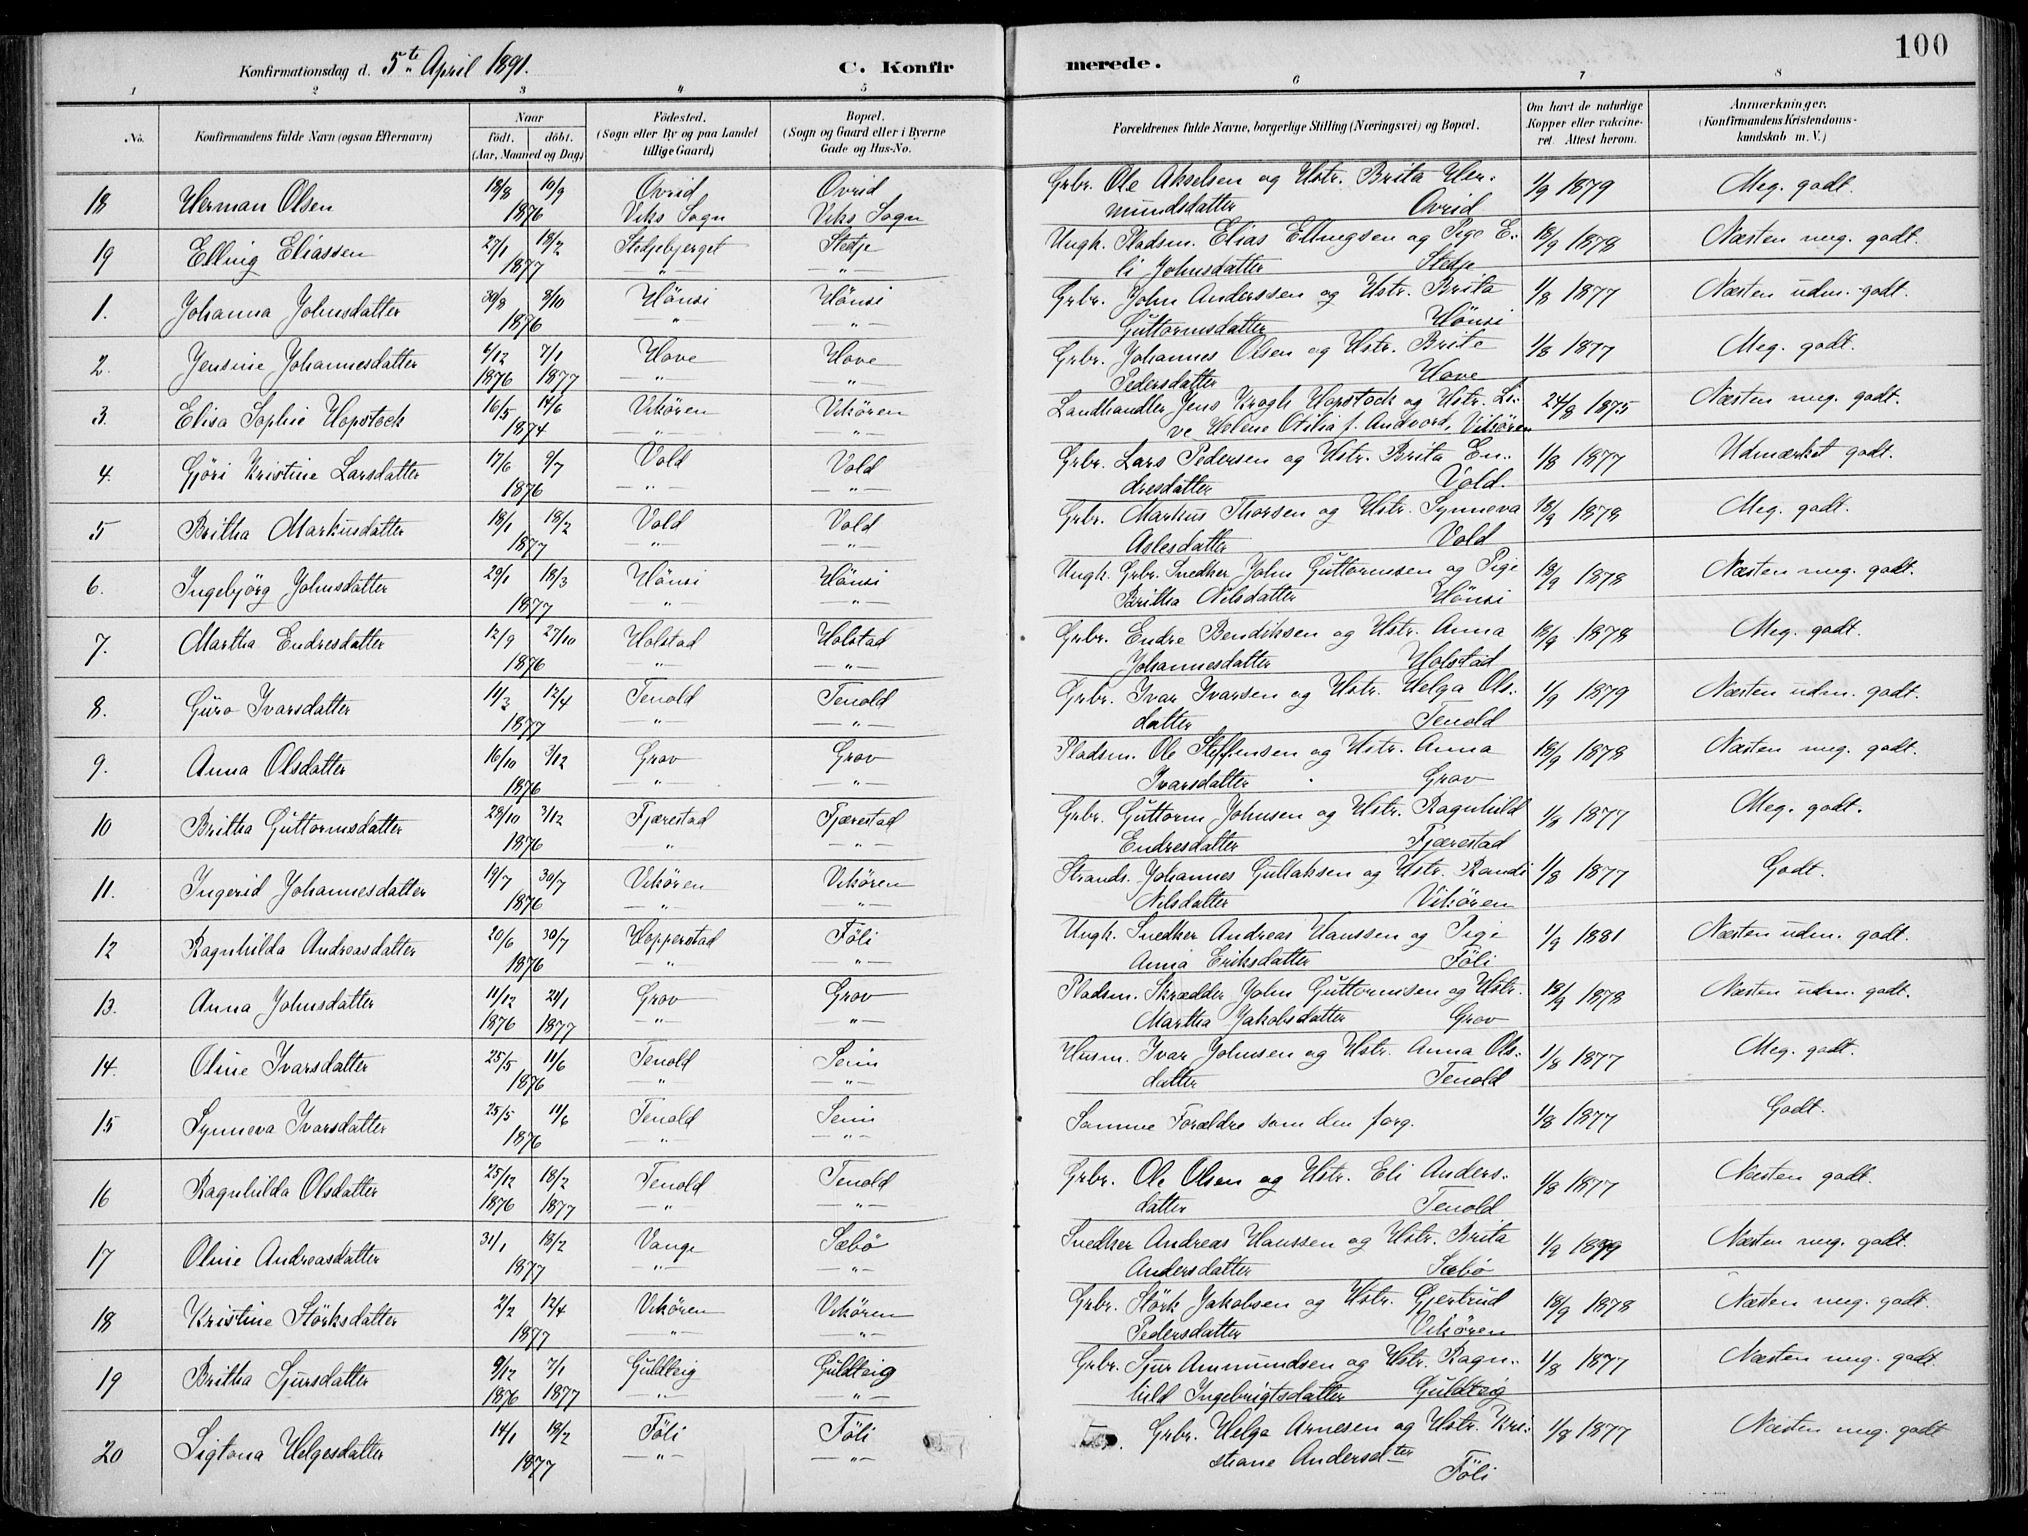 100
Konfirmationsdag d. 5te April 1891.
C. Konfir merede.
1 2 3 4 5 6 7 8
No. Konfirmandens fulde Navn (ogsaa Efternavn) Naar født. døbt. (Aar, Maaned og Dag) Fødested. (Sogn eller By og paa Landet tillige Gaard) Bopæl. (Sogn og Gaard eller i Byerne Gade og Hus-No. Forældrenes fulde Navne, borgerlige Stilling (Næringsvei) og Bopæl. Om havt de naturlige Kopper eller vakcineret. Attest herom. Anmærkninger, (Konfirmandens Kristendomskundskab m. V.)
18 Herman Olsen 18/8 10/9 Ovrid Ovrid Grbr. Ole Akselsen og Hstr. Brita Her- 1/9 1879 Meg. godt.
1876 Viks Sogn Viks Sogn mundsdatter Ovrid
19 Elling Eliassen 27/1 18/2 Stedjebjerget Stedje Ungk. Pladsm. Elias Ellingsen og Pige E- 18/9 1878 Næsten meg. godt.
1877 —"— —"— li Johnsdatter Stedje
1. Johanna Johnsdatter 30/8 8/10 Hönsi Hönsi Grbr. John Anderssen og Hstr. Brita 1/8 1877 Næsten udm. godt.
1876 " —"— Guttormsdatter Hönsi
2. Jensine Johannesdatter 4/12 7/1 Hove Hove Grbr. Johannes Olsen og Hstr. Brite 1/8 1877 Meg. godt.
1876 1877 —"— —"— Pedersdatter Hove
3. Elisa Sophie Hopstock 16/5 14/6 Vikören Vikören Landhandler Jens Krogh Hopstock og Hstr. Li- 24/8 1875 Næsten meg. godt.
1874 —"— —"— ve Helene Otilia f. Andvord, Vikören
4. Gjöri Kristine Larsdatter 17/6 9/7 Vold Vold Grbr. Lars Pedersen og Hstr. Brita En- 1/8 1877 Udmærket godt.
1876 —"— —"— dresdatter Vold.
5 Britha Markusdatter 18/1 18/2 Vold Vold Grbr. Markus Thorsen og Hstr. Synneva 18/9 1878 Meg. godt.
1877 —"— —"— Aslesdatter Vold
6. Ingebjörg Johnsdatter 29/1 18/3 Hönsi Hönsi Ungk. Grbr. Snedker John Guttormsen og Pige 18/9 1878 Næsten meg. godt.
1877 —"— —"— Britha Nilsdatter Hönsi
7. Martha Endresdatter 12/9 27/10 Holstad Holstad Grbr. Endre Bendiksen og Hstr. Anna 18/9 1878 Meg. godt.
1876 —"— —"— Johannesdatter Holstad
8. Guro Ivarsdatter 11/3 12/4 Tenold Tenold Grbr. Ivar Ivarsen og Hstr. Helga Ols- 1/9 1879 Næsten udm. godt.
1877 —"— —"— datter Tenold
9. Anna Olsdatter 16/10 3/12 Grov Grov Pladsm. Ole Steffensen og Hstr. Anna 18/9 1878 Næsten meg. godt.
1876 —"— —"— Ivarsdatter Grov
10 Britha Guttormsdatter 28/10 3/12 Fjærestad Fjærestad Grbr. Guttorm Johnsen og Hstr. Ragnhild 1/8 1877 Meg. godt.
1876 —"— —"— Endresdatter Fjærestad
11. Ingerid Johannesdatter 19/7 30/7 Vikören Vikören Strands. Johannes Gullaksen og Hstr. Randi 1/8 1877 Godt.
1876 —"— —"— Nilsdatter Vikören
12 Ragnhilda Andreasdatter 20/6 30/7 Hopperstad Föli Ungk. Snedker Andreas Hanssen og Pige 1/9 1881 Næsten udm. godt.
1876 —"— —"— Anna Eriksdatter Föli
13. Anna Johnsdatter 11/12 21/1 Grov Grov Pladsm. Skrædder John Guttormsen og Hstr. 18/9 1878 Næsten udm. godt.
1876 1877 —"— —"— Martha Jakobsdatter Grov
14. Oline Ivarsdatter 25/5 11/6 Tenold Seim Husm. Ivar Johnsen og Hstr. Anna Ols- 1/8 1877 Meg. godt.
1876 —"— —"— datter Tenold
15 Synneva Ivarsdatter 25/5 11/6 Tenold Seim Samme Forældre som den forg. 1/8 1877 Godt.
1876 —"— —"—
16 Ragnhilda Olsdatter 25/12 18/2 Tenold Tenold Grbr. Ole Olsen og Hstr. Eli Anders- 1/8 1877 Næsten godt.
1876 1877 —"— —"— datter Tenold
17 Oline Andreasdatter 31/1 18/2 Vange Sæbö Snedker Andreas Hanssen og Hstr. Brita 1/9 1879 Næsten meg. godt.
1877 —"— —"— Andersdatter Sæbö
18 Kristine Störksdatter 2/2 12/4 Vikören Vikören Grbr. Störk Jakobsen og Hstr. Gjertrud 18/9 1878 Næsten meg. godt.
1877 —"— —"— Pedersdatter Vikören
19 Britha Sjursdatter 9/12 7/1 Guldteig Guldteig Grbr. Sjur Ammundsen og Hstr. Ragn- 1/8 1877 Næsten meg. godt
1876 1877 —"— —"— hild Ingebrigtsdatter Guldteig
20 Sigtona Helgesdatter 14/1 18/2 Föli Föli Grbr. Helge Arnesen og Hstr. Kri- 1/8 1877 Næsten meg. godt
1877 —"— —"— stiane Andersdter Föli